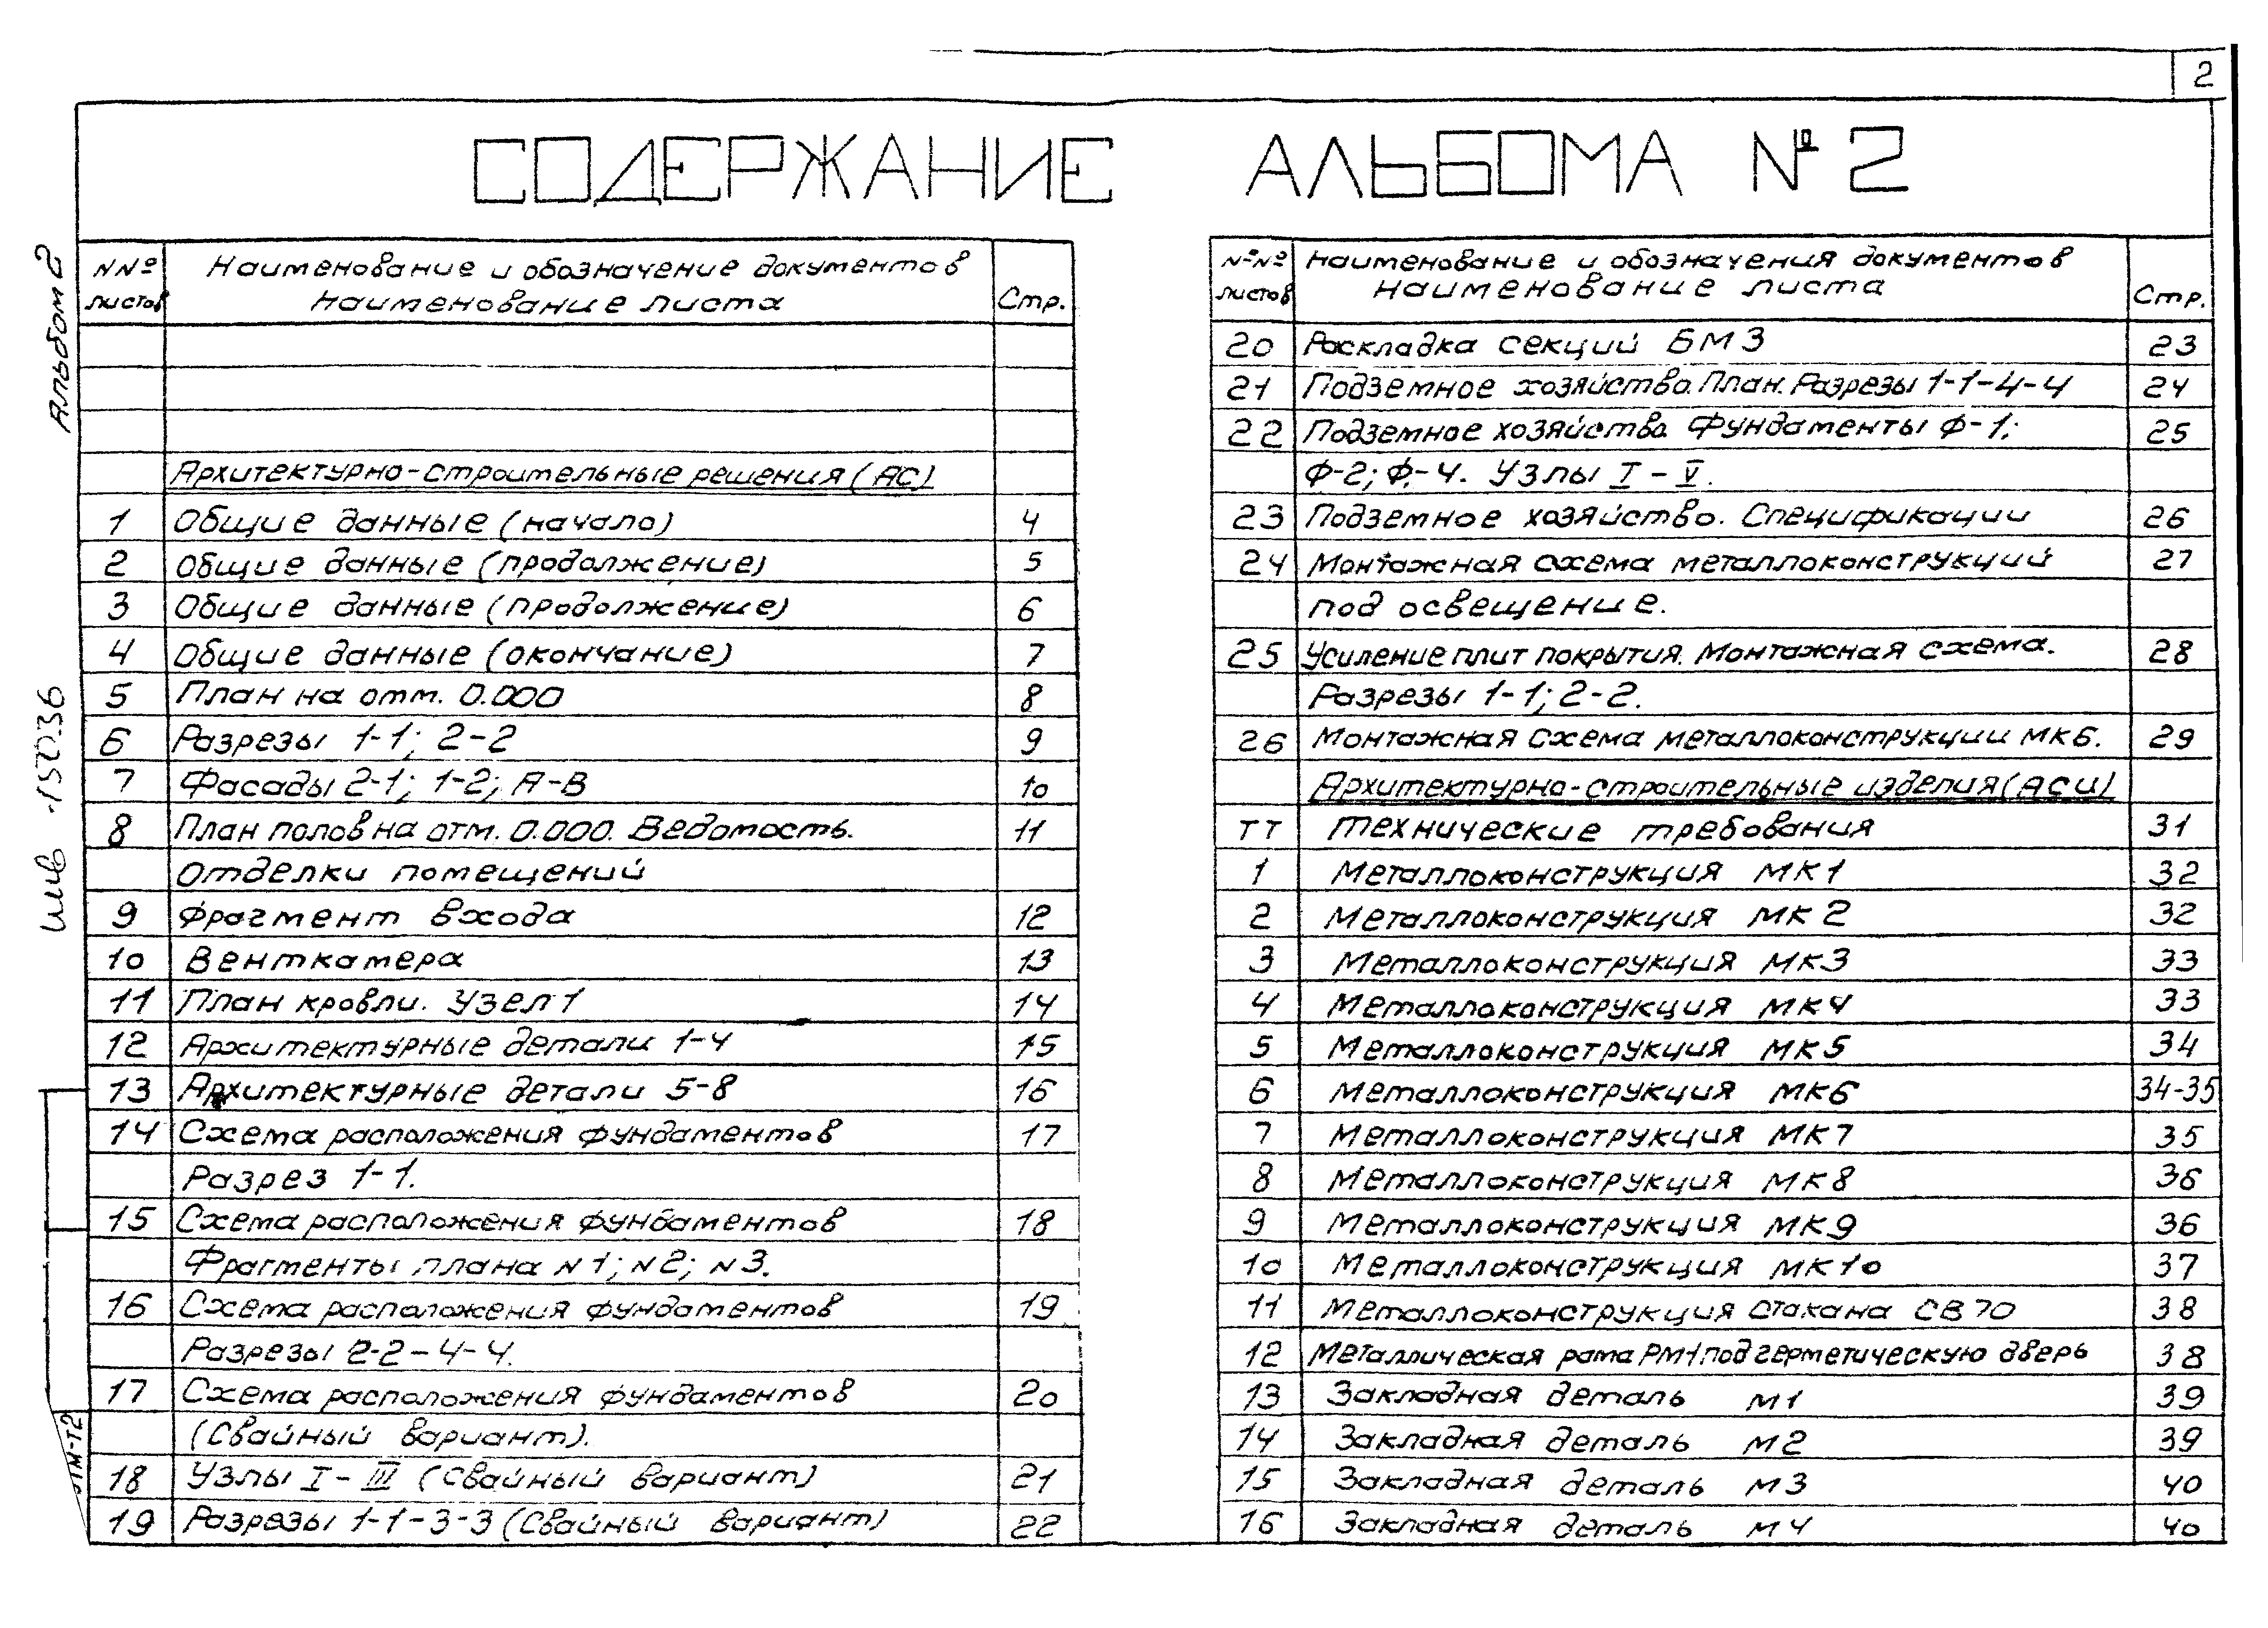 2
СОДЕРЖАНИЕ АЛЬБОМА №2
Альбом 2
инв -15036
NNº листов
Наименование и обозначение документов
Наименование листа
Стр.
Архитектурно-строительные решения (АС)
1 Общие данные (начало) 4
2 Общие данные (продолжение) 5
3 Общие данные (продолжение) 6
4 Общие данные (окончание) 7
5 План на отм. 0.000 8
6 Разрезы 1-1; 2-2 9
7 Фасады 2-1; 1-2; А-В 10
8 План полов на отм. 0.000. Ведомость. 11
Отделки помещений
9 Фрагмент входа 12
10 Венткамера 13
11 План кровли. Узел 1 14
12 Архитектурные детали 1-4 15
13 Архитектурные детали 5-8 16
14 Схема расположения фундаментов 17
Разрез 1-1.
15 Схема расположения фундаментов 18
Фрагменты плана N1; N2; N3.
16 Схема расположения фундаментов 19
Разрезы 2-2-4-4.
17 Схема расположения фундаментов 20
(Свайный вариант).
18 Узлы I-III (Свайный вариант) 21
19 Разрезы 1-1-3-3 (Свайный вариант) 22
№№ листов
Наименование и обозначения документов
Наименование листа
Стр.
20 Раскладка секций БМЗ 23
21 Подземное хозяйство. План. Разрезы 1-1-4-4 24
22 Подземное хозяйство. Фундаменты Ф-1; 25
Ф-2; Ф-4. Узлы I-V.
23 Подземное хозяйство. Спецификации 26
24 Монтажная схема металлоконструкций 27
под освещение.
25 Усиление плит покрытия. Монтажная схема. 28
Разрезы 1-1; 2-2.
26 Монтажная схема металлоконструкции МК6. 29
Архитектурно-строительные изделия (АСИ)
ТТ Технические требования 31
1 Металлоконструкция МК1 32
2 Металлоконструкция МК2 32
3 Металлоконструкция МК3 33
4 Металлоконструкция МК4 33
5 Металлоконструкция МК5 34
6 Металлоконструкция МК6 34-35
7 Металлоконструкция МК7 35
8 Металлоконструкция МК8 36
9 Металлоконструкция МК9 36
10 Металлоконструкция МК10 37
11 Металлоконструкция стакана СВ70 38
12 Металлическая рама РМ1 под герметическую дверь 38
13 Закладная деталь М1 39
14 Закладная деталь М2 39
15 Закладная деталь М3 40
16 Закладная деталь М4 40